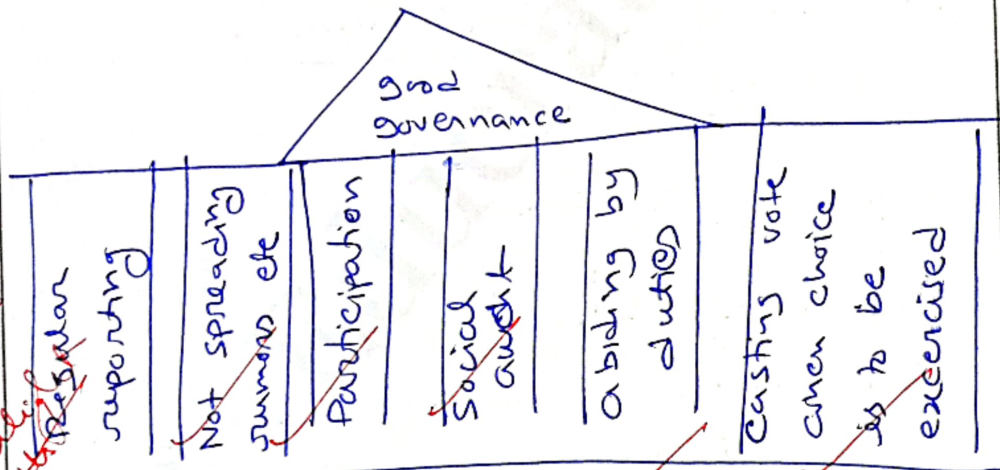 good
governance
Regular
reporting
Not spreading
rumors etc
Participation
Social
audit
abiding by
duties
Casting vote
when choice
is to be
exercised